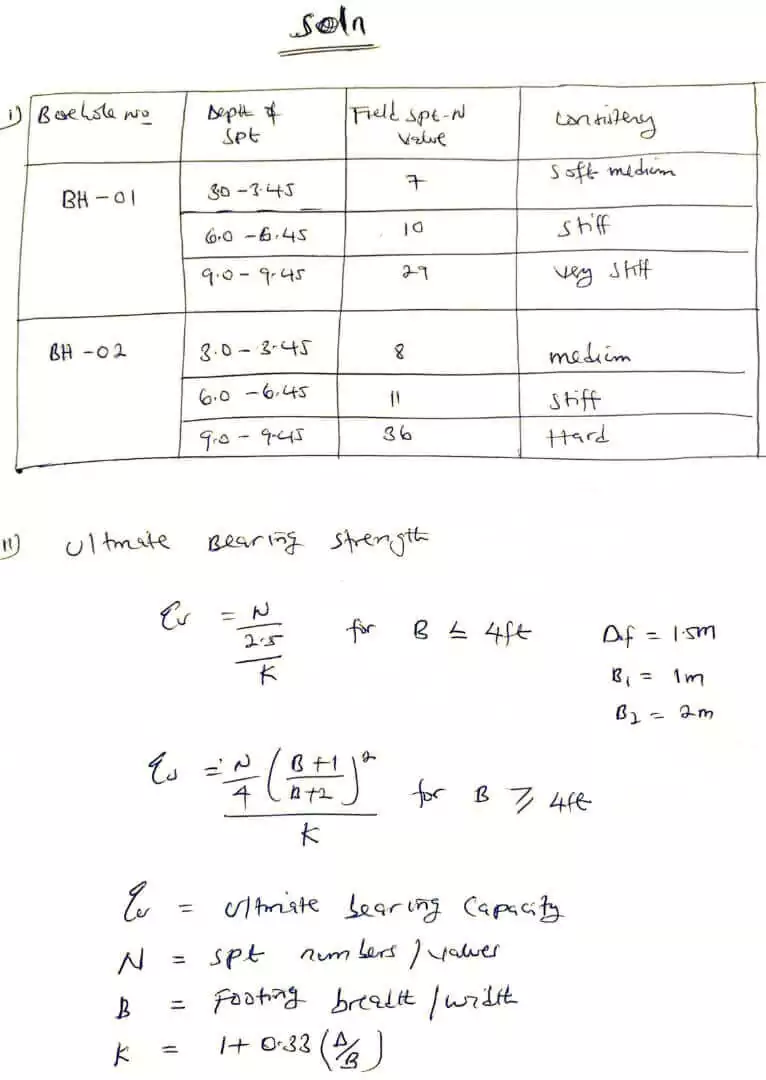 Soln
i) Borehole no | Depth of Spt | Field Spt-N Value | Consistency
BH-01 | 30-3.45 | 7 | Soft medium
6.0 - 6.45 | 10 | Stiff
9.0 - 9.45 | 29 | Very Stiff
BH-02 | 3.0 - 3.45 | 8 | medium
6.0 - 6.45 | 11 | Stiff
9.0 - 9.45 | 36 | Hard
ii) Ultimate Bearing Strength
qu = N/2.5 / K for B ≤ 4ft
Df = 1.5m
B₁ = 1m
B₂ = 2m
qu = N/4 (B+1/B+2)² / K for B ≥ 4ft
qu = Ultimate bearing Capacity
N = Spt numbers / values
B = Footing breadth / width
K = 1 + 0.33 (D/B)